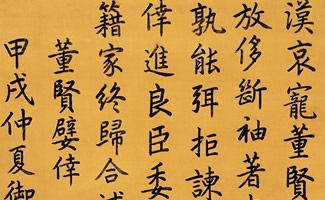 漢哀寵董賢
放侈斷袖著
孰能弭拒諫
倖進良臣委
籍家終歸合
董賢嬖倖
甲戌仲夏御